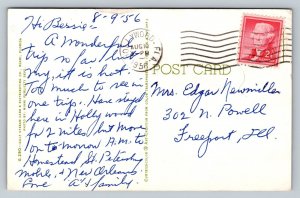 Hi Bessie: 8-9-56
A Wonderful
trip so far but
boy, it is hot.
Too much to see in
one trip. Have stayed
here in Hollywood
for 2 nites but move
on tomorrow A.M. to
Homestead St. Petersburg
Mobile, & New Orleans
Love A & family.
FLA
AUG 10
1956
POST CARD
Mrs. Edgar Newmiller
302 N. Powell
Freeport, Ill.